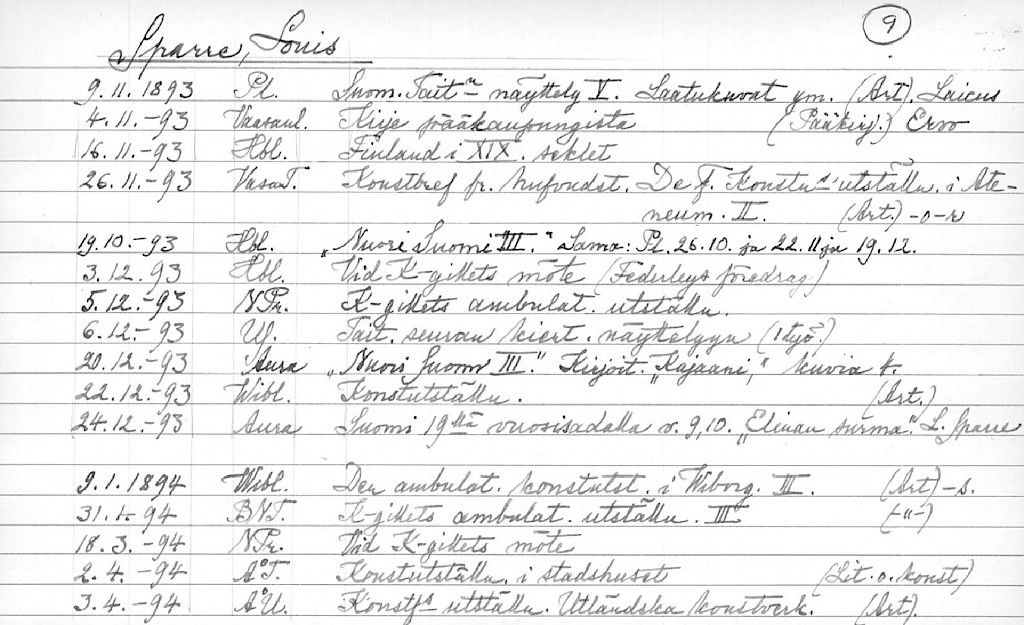 9
Sparre, Louis
9.11.1893 Pl. Suom. Tait:n näyttely V. Laatukuvat ym. (Art). Laicus
4.11.-93 Vaasaul. Kirje pääkaupungista (Pääkirj.) Ervo
16.11.-93 Hbl. Finland i XIX. seklet
26.11.-93 VasaT. Konstbref fr. hufvudst. De f. Konstn:s utställn. i Ate-
neum. II. (Art.) -o-r
19.10.-93 Hbl. „Nuori Suomi III." Sama: Pl. 26.10. ja 22.11 ja 19.12.
3.12.93 Hbl. Vid K-gillets möte (Federleys föredrag)
5.12.-93 N.Pr. K-gillets ambulat. utställn.
6.12.-93 U. Tait. seuran kiert. näyttelyyn (1 työ?)
20.12.-93 Aura „Nuori Suomi III." Kirjoit. „Kajaani," kuvia
22.12.-93 Wibl. Konstutställn. (Art.)
24.12.-93 Aura Suomi 19llä vuosisadalla v. 9,10. „Elinan surma". L. Sparre
9.1.1894 Wibl. Den ambulat. konstutst. i Wiborg. III. (Art) -s.
31.1.-94 B.N.T. K-gillets ambulat. utställn. III (-"-)
18.3.-94 N.Pr. Vid K-gillets möte
2.4.-94 Å.T. Konstutställn. i stadshuset (Lit. o. konst)
3.4.-94 Å.U. Konstf:s utställn. Utländska konstverk. (Art).